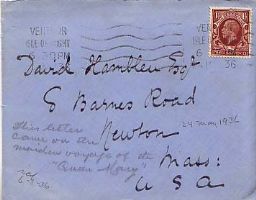 VENTNOR
ISLE OF WIGHT
VENT
ISLE O
36
David Hamblen Esqr
8 Barnes Road
Newton
Mass:
U S A
This letter
came on the
maiden voyage of the
"Queen Mary"